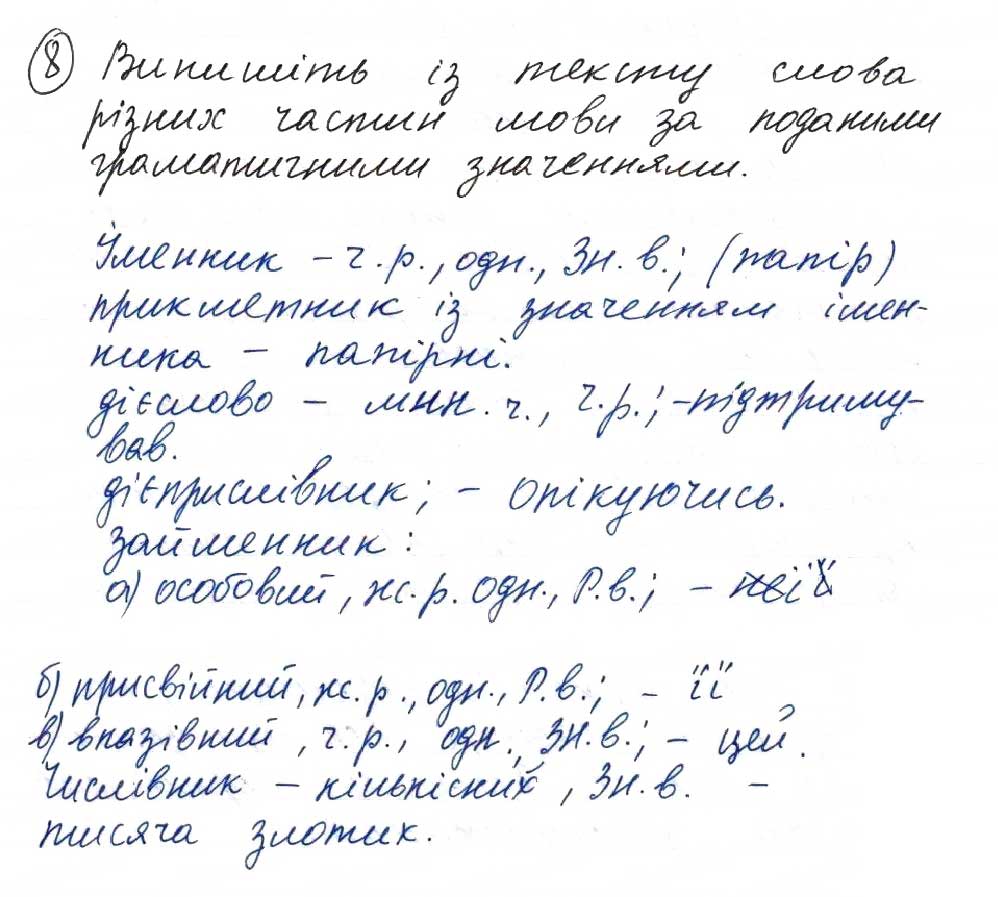 8 Випишіть із тексту слова
різних частин мови за поданими
граматичними значеннями.
Іменник – ч.р., одн., Зн. в.; (папір)
прикметник із значенням імен-
ника – папірні.
дієслово – мнн. ч., ч.р.; – підтриму-
вав.
дієприслівник; – опікуючись.
займенник:
а) особовий, ж.р. одн., Р.в.; –
б) присвійний, ж.р., одн., Р.в.; – її
в) вказівний, ч.р., одн., Зн.в.; – цей.
Числівник – кількісних, Зн.в. –
тисяча злотих.